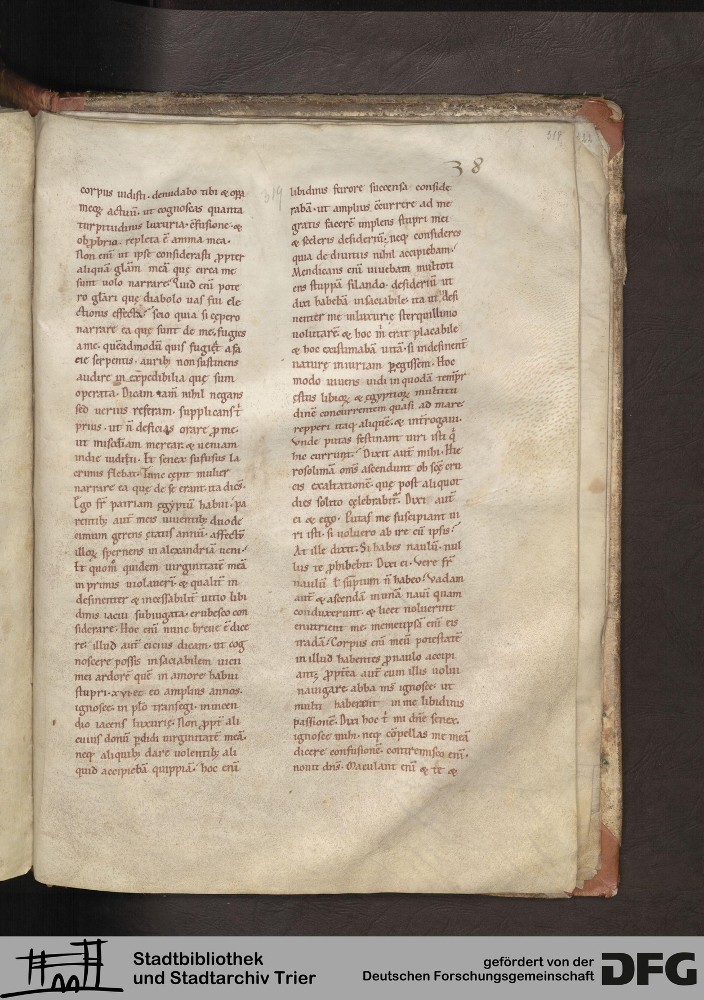 319 123
38
319
corpus uidisti. denudabo tibi & opa
meoꝝ actuū. ut cognoscas quanta
turpitudinis luxuria. c̄fusione. &
obp̱brio repleta ē anima mea.
Non enī ut ipse considerasti ꝓpter
aliquā glām meā quę circa me
sunt uolo narrare. Quid enī pote
ro glari quę diabolo uas fui ele
ctionis effecta. scio quia si cępero
narrare ea quę sunt de me. fugies
a me. quēadmodū quis fugiet a fa
cie serpentis. aurib; non sustinens
audire inexpedibilia quę sum
operata. Dicam tam̄ nihil negans
sed uerius referam. supplicans t̄
prius. ut n̄ deficias orare ꝓ me.
ut misc̄diam merear & ueniam
indie iudicii. Et senex suffusus la
crimis flebat. Tunc cępit mulier
narrare ea quę de se erant. ita dicēs.
Ego fr̄ patriam egyptū habui. pa
rentib; aut̄ meis uiuentib; duode
cimum gerens etatis annū. affectū
illoꝝ spernens in alexandriā ueni.
Et quom̊ quidem uirginitatē meā
in primis uiolauerī. & qualit̄ in
definenter & incessabilit̄ uitio libi
dinis iacui subiugata. erubesco con
siderare. Hoc enī nunc breue ē dice
re. illud aut̄ cicius dicam. ut cog
noscere possis insaciabilem uicii
mei ardorē quē in amore habui
stupri. xvi. et eo amplius annos.
ignosce. in plo transegi. in incen
dio iacens luxurię. Non ꝓpt̄ ali
cuius donū ꝑdidi uirginitatē meā.
neq; aliquib; dare uolentib; ali
quid accipiebā quippiā. hoc enī
libidinis furore succensa conside
rabā. ut amplius c̄currere ad me
gratis facerē implens stupri mei
& sceleris desideriū. neq; consideres
quia de diuitiis nihil accipiebam.
Mendicans enī uiuebam multoti
ens stuppā filando. desideriū ut
dixi habebā insaciabile. ita ut idefi
nenter me inluxurię sterquilinio
uolutarē. & hoc m̄ erat placabile
& hoc existimabā uitā. si indefinent̄
naturę iniuriam peregissem. Hoc
modo uiuens uidi in quodā tempr̄
ęstus libicoꝝ & egyptioꝝ multitu
dinē concurrentem quasi ad mare.
repperi itaq; aliquē. & int̄rogaui.
Vnde putas festinant uiri isti q̄
hic currunt. Dixit aut̄ mihi. Hie
rosolimā om̄s ascendunt ob scē cru
cis exaltationē. quę post aliquot
dies solito cęlebrabit̄. Dixi aut̄
ei & ego. Putas me suscipiant ui
ri isti. si uoluero ab ire cū ipsis.
At ille dixit. Si habes naulū. nul
lus te ꝓhibebit. Dixi ei. Vere fr̄
naulū l sūptum n̄ habeo. Vadam
aut̄ & ascendā inunā nauī quam
conduxerunt. & licet noluerint
enutrient me. memetipsā enī eis
tradā. Corpus enī meū potestatē
in illud habentes ꝓ naulo accipi
ant. ꝓptea aut̄ cum illis uolui
nauigare abba m̄s ignosce. ut
multi haberent in me libidinis
passionē. Dixi hoc t̄ mi dn̄e senex.
ignosce mihi. neq; cōpellas me meā
dicere confusionē. contremisco enī.
nouit dn̄s. Maculant enī & te &
Stadtbibliothek
und Stadtarchiv Trier
gefördert von der
Deutschen Forschungsgemeinschaft
DFG